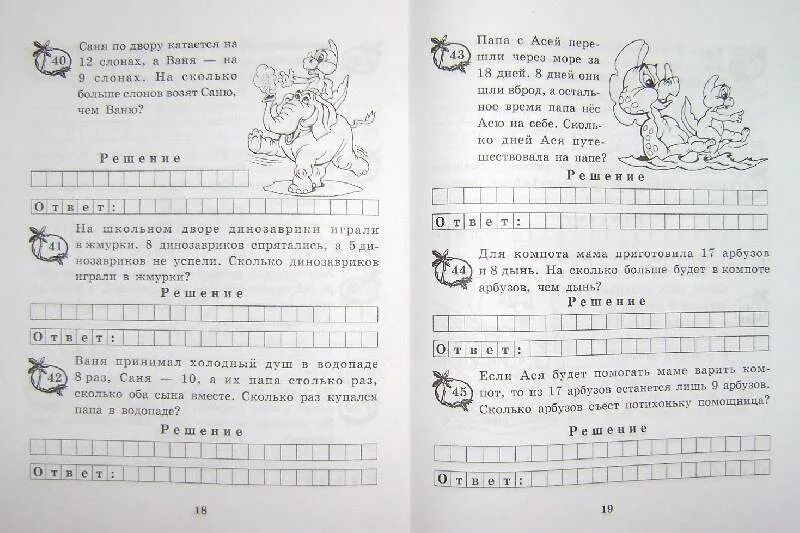 40
Саня по двору катается на
12 слонах, а Ваня — на
9 слонах. На сколько
больше слонов возят Саню,
чем Ваню?
Решение
Ответ:
41
На школьном дворе динозаврики играли
в жмурки. 8 динозавриков спрятались, а 5 ди-
нозавриков не успели. Сколько динозавриков
играли в жмурки?
Решение
Ответ:
42
Ваня принимал холодный душ в водопаде
8 раз, Саня — 10, а их папа столько раз,
сколько оба сына вместе. Сколько раз купался
папа в водопаде?
Решение
Ответ:
18
43
Папа с Асей пере-
шли через море за
18 дней. 8 дней они
шли вброд, а осталь-
ное время папа нёс
Асю на себе. Сколь-
ко дней Ася путе-
шествовала на папе?
Решение
Ответ:
44
Для компота мама приготовила 17 арбузов
и 8 дынь. На сколько больше будет в компоте
арбузов, чем дынь?
Решение
Ответ:
45
Если Ася будет помогать маме варить ком-
пот, то из 17 арбузов останется лишь 9 арбузов.
Сколько арбузов съест потихоньку помощница?
Решение
Ответ:
19